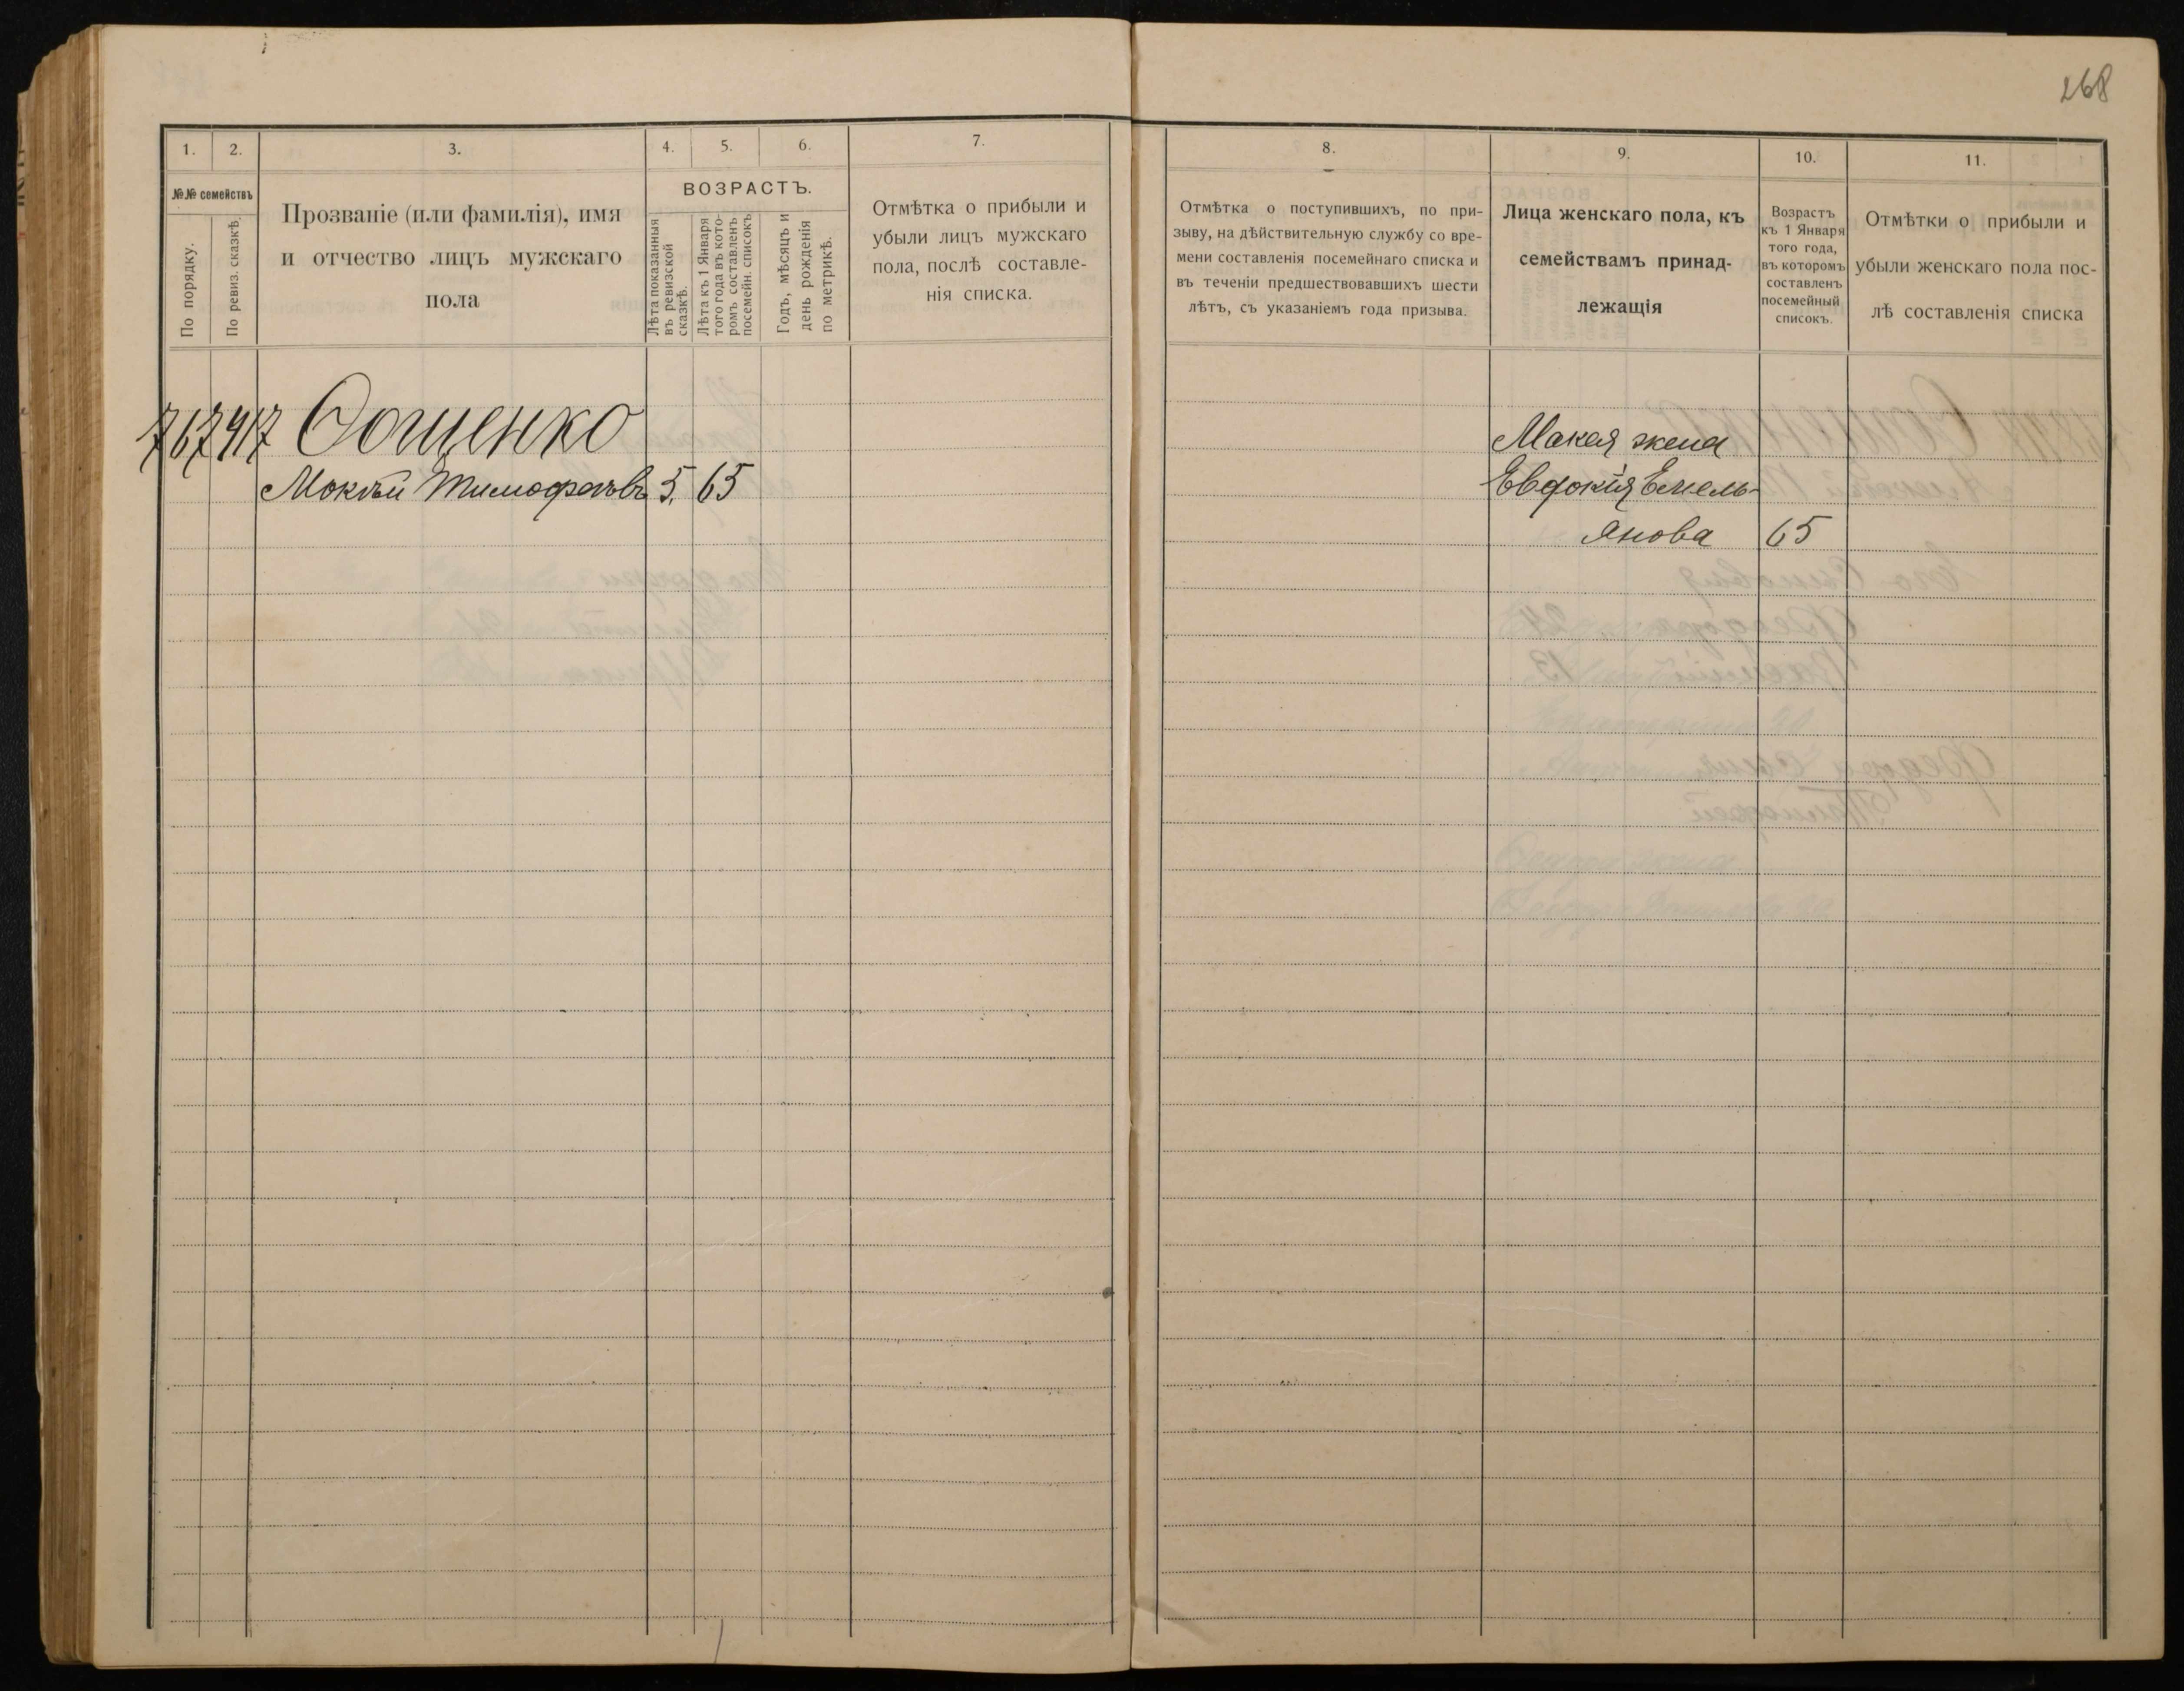 268
1. 2. 3. 4. 5. 6. 7.
№№ семействъ
По порядку.
По ревиз. сказкѣ.
Прозваніе (или фамилія), имя
и отчество лицъ мужскаго
пола
ВОЗРАСТЪ.
Лѣта показанныя
въ ревизской
сказкѣ.
Лѣта къ 1 Января
того года въ кото-
ромъ составленъ
посемейн. списокъ
Годъ, мѣсяцъ и
день рожденія
по метрикѣ.
Отмѣтка о прибыли и
убыли лицъ мужскаго
пола, послѣ составле-
нія списка.
767 417
5. 65
8. 9. 10. 11.
Отмѣтка о поступившихъ, по при-
зыву, на дѣйствительную службу со вре-
мени составленія посемейнаго списка и
въ теченіи предшествовавшихъ шести
лѣтъ, съ указаніемъ года призыва.
Лица женскаго пола, къ
семействамъ принад-
лежащія
Возрастъ
къ 1 Января
того года,
въ которомъ
составленъ
посемейный
списокъ.
Отмѣтки о прибыли и
убыли женскаго пола пос-
лѣ составленія списка
Мокея жена
Евдокія Емель-
янова 65